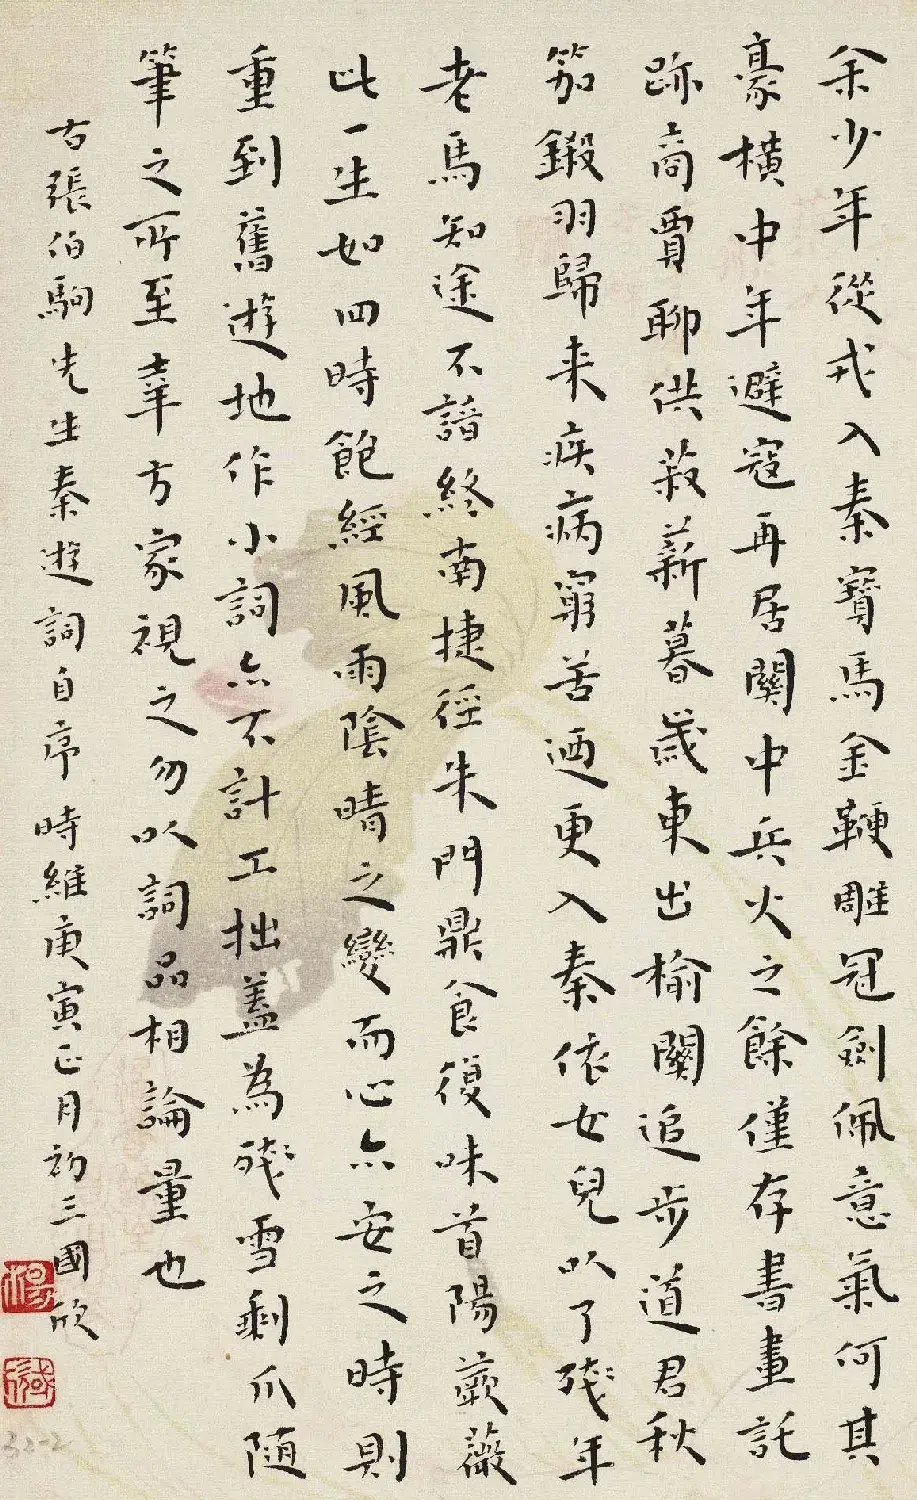 余少年從戎入秦寶馬金鞭雕冠劍佩意氣何其
豪橫中年避寇再居關中兵火之餘僅存書畫託
跡商賈聊供菽薪暮歲東出榆關追步道君秋
笳鎩羽歸来疾病窮苦迺更入秦依女兒以了殘年
老馬知途不諳終南捷徑朱門鼎食復味首陽蕨薇
此一生如四時飽經風雨陰晴之變而心亦安之時則
重到舊遊地作小詞亦不計工拙蓋為殘雪剩爪隨
筆之所至幸方家視之勿以詞品相論量也
右張伯駒先生秦遊詞自序時維庚寅正月初三國欣
32-2